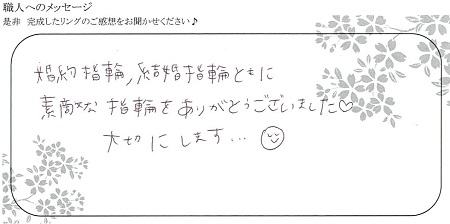 職人へのメッセージ
是非 完成したリングのご感想をお聞かせください♪
婚約指輪,結婚指輪ともに
素敵な指輪をありがとうございました♡
大切にします…